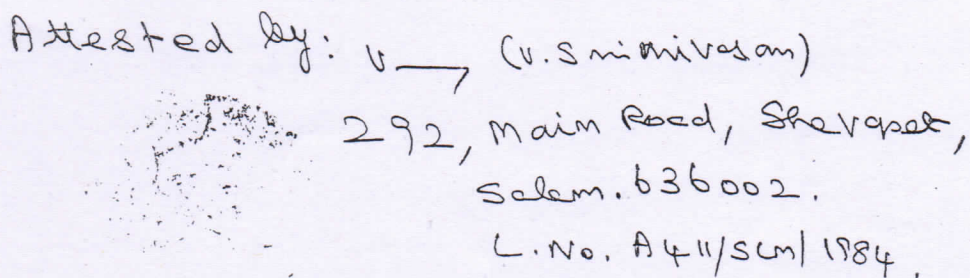 Attested by: V (V. Srinivasan)
292, Main Road, Shevapet,
Salem. 636002.
L.No. A411/SLM/1984.